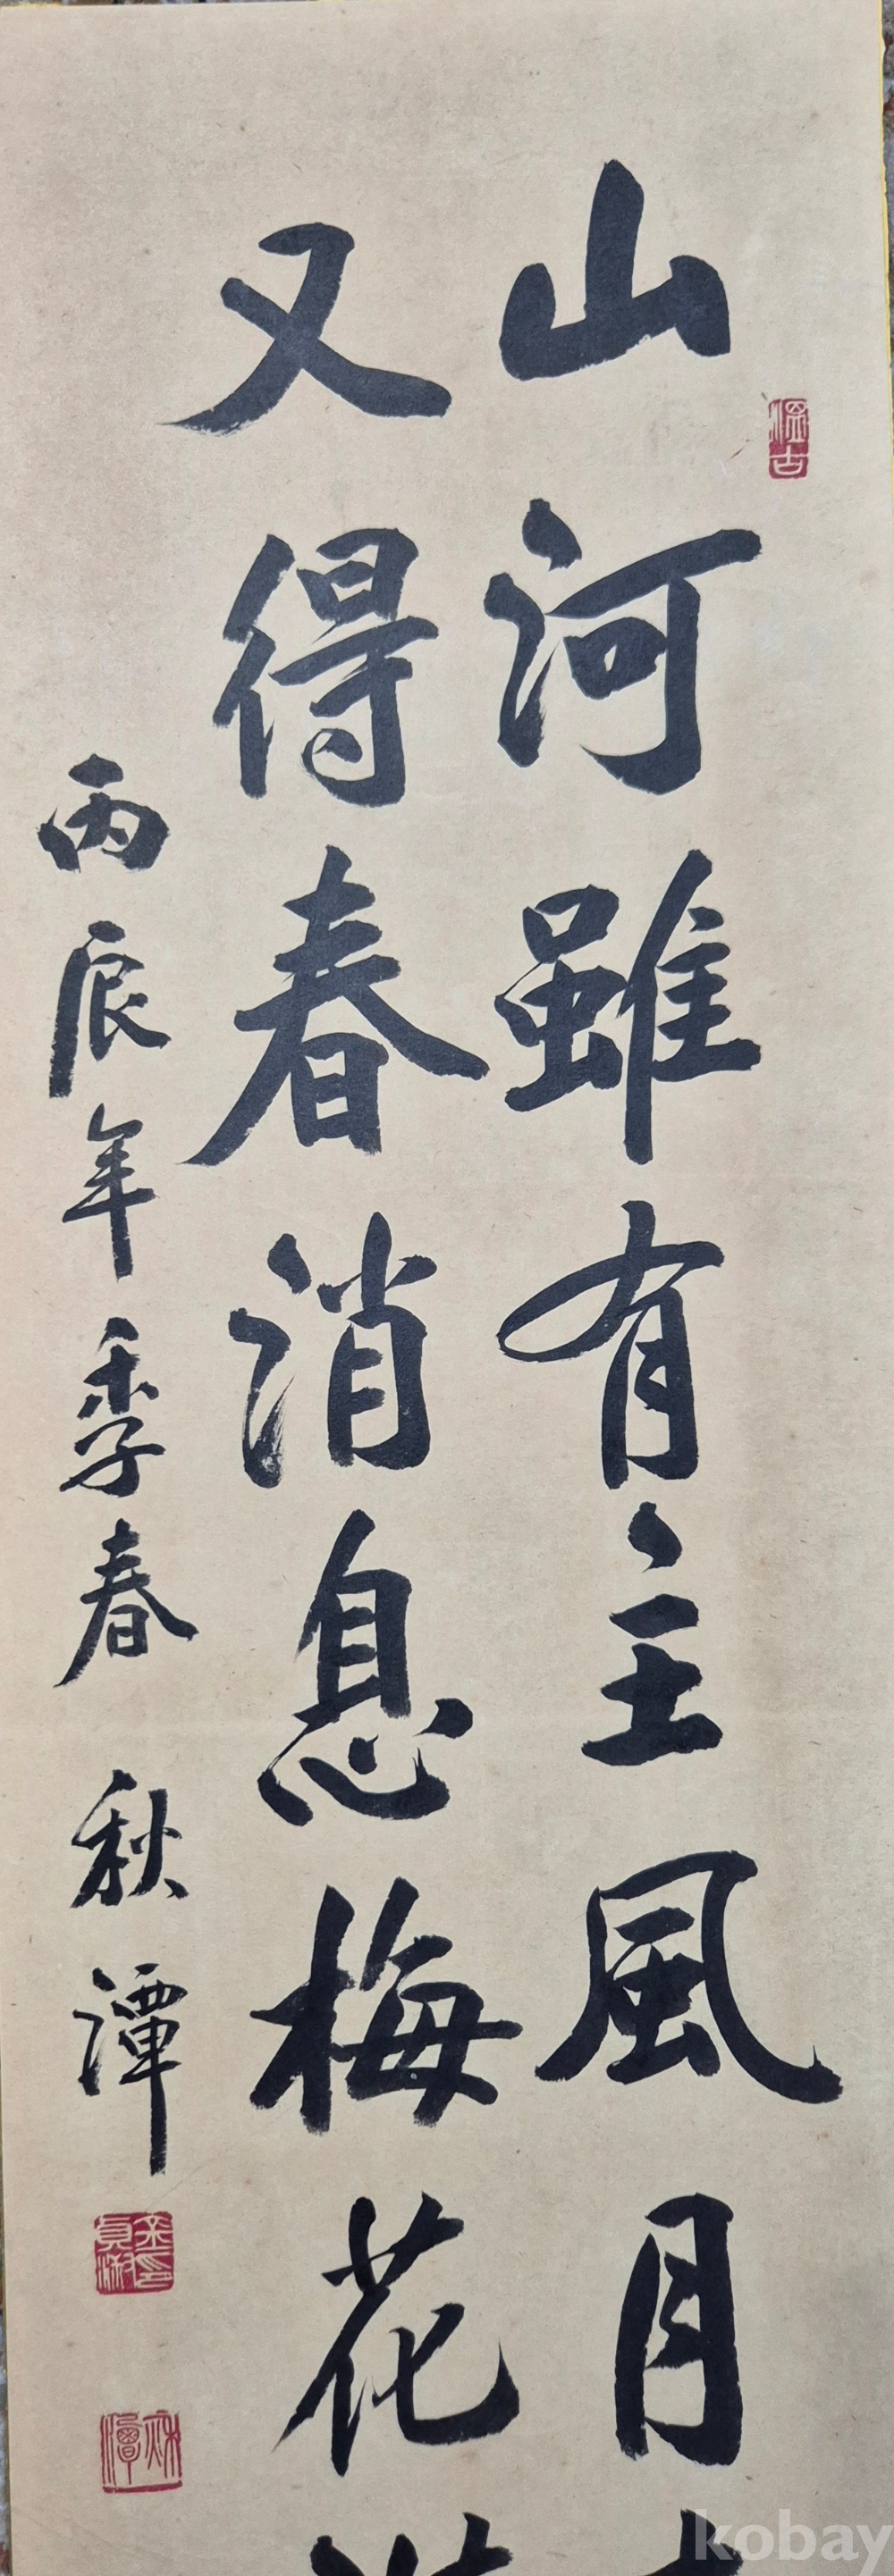 山河雖有主風月
又得春消息梅花
丙辰年季春 秋潭
溫古
秋潭
kobay